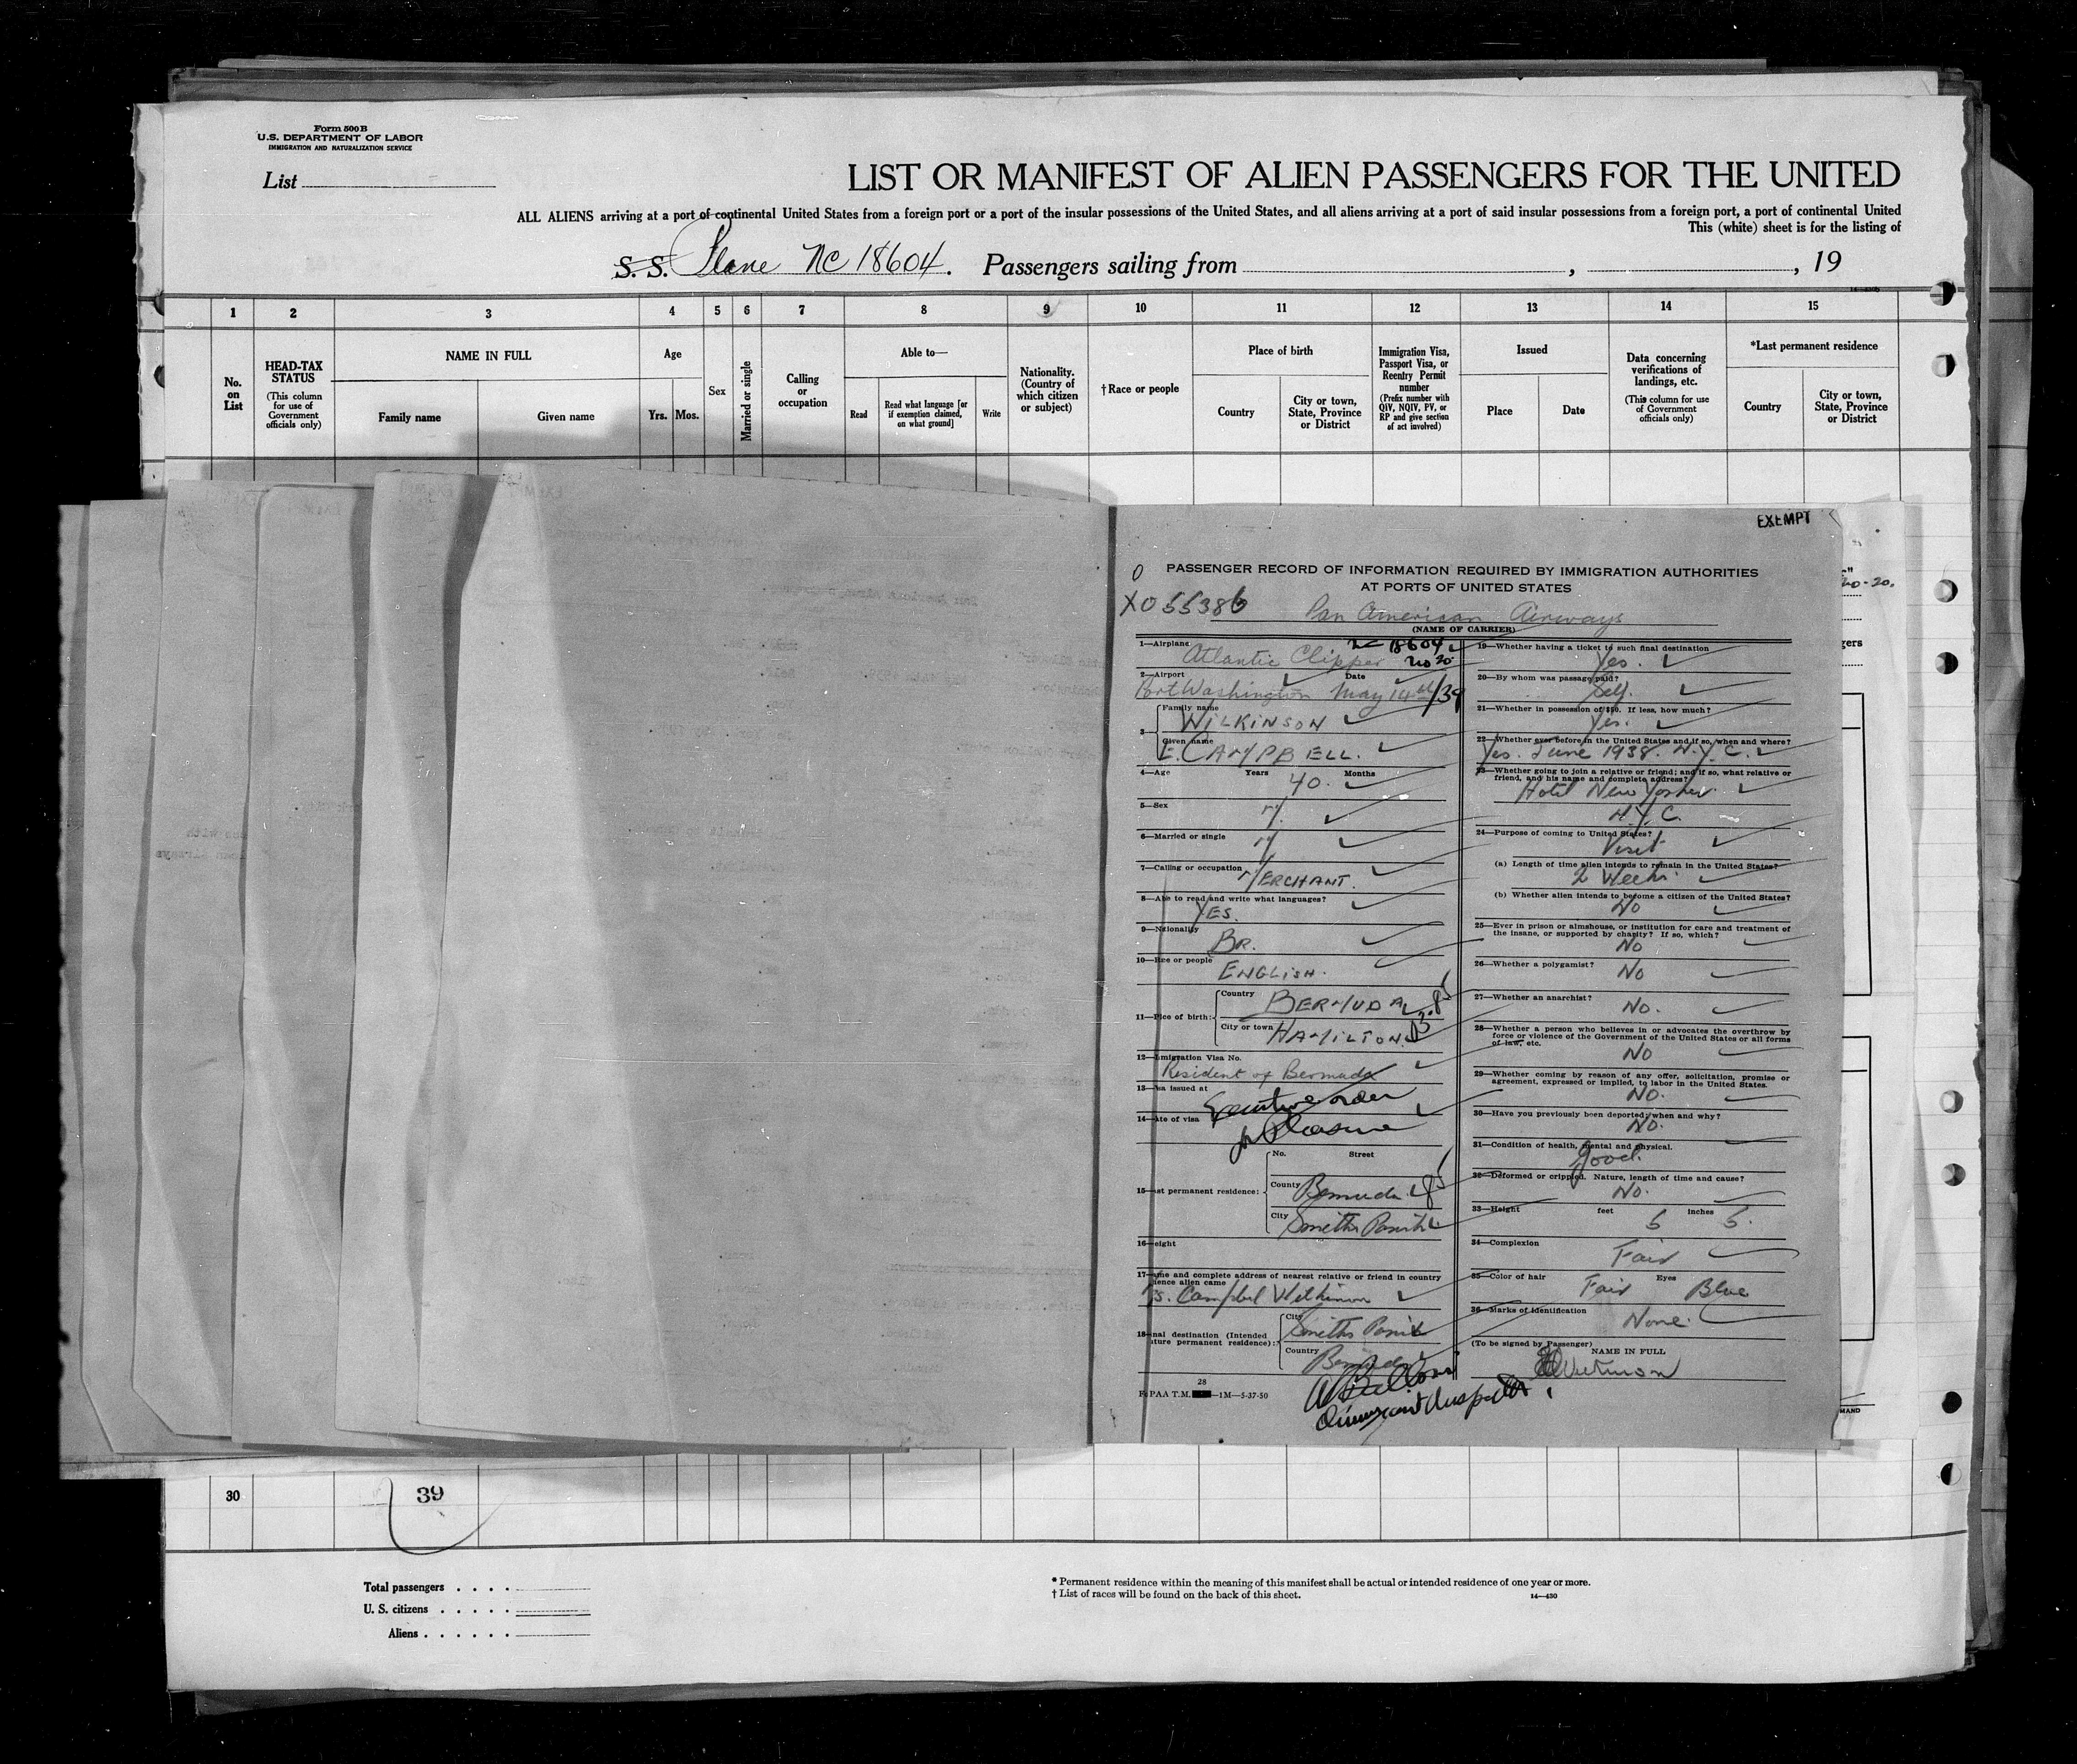 Form 500 B
U.S. DEPARTMENT OF LABOR
IMMIGRATION AND NATURALIZATION SERVICE
List
LIST OR MANIFEST OF ALIEN PASSENGERS FOR THE UNITED
ALL ALIENS arriving at a port of continental United States from a foreign port or a port of the insular possessions of the United States, and all aliens arriving at a port of said insular possessions from a foreign port, a port of continental United
This (white) sheet is for the listing of
S. S. Plane NC 18604. Passengers sailing from , , 19
1 2 3 4 5 6 7 8 9 10 11 12 13 14 15
No. on List
HEAD-TAX STATUS
(This column for use of Government officials only)
NAME IN FULL
Family name Given name
Age
Yrs. Mos.
Sex
Married or single
Calling or occupation
Able to—
Read
Read what language [or if exemption claimed, on what ground]
Write
Nationality. (Country of which citizen or subject)
† Race or people
Place of birth
Country
City or town, State, Province or District
Immigration Visa, Passport Visa, or Reentry Permit number
(Prefix number with QIV, NQIV, PV, or RP and give section of act involved)
Issued
Place Date
Data concerning verifications of landings, etc.
(This column for use of Government officials only)
*Last permanent residence
Country
City or town, State, Province or District
EXEMPT
PASSENGER RECORD OF INFORMATION REQUIRED BY IMMIGRATION AUTHORITIES
AT PORTS OF UNITED STATES
X055386
Pan American Airways
(NAME OF CARRIER)
1—Airplane
18604
Atlantic Clipper no 20
2—Airport Date
Port Washington May 14th/39
3
Family name
WILKINSON
Given name
E. CAMPBELL.
4—Age Years Months
40.
5—Sex
M.
6—Married or single
M
7—Calling or occupation
MERCHANT.
8—Able to read and write what languages?
YES.
9—Nationality
BR.
10—Race or people
ENGLISH.
11—Place of birth:
Country
BERMUDA
City or town
HAMILTON.
12—Immigration Visa No.
Resident of Bermuda
13—Visa issued at
Executive order
14—Date of visa
for Pleasure
No. Street
15—st permanent residence:
County
Bermuda
City
Smiths Parish
16—eight
17—ame and complete address of nearest relative or friend in country
ience alien came
s. Campbel Wilkinson
18—nal destination (Intended
uture permanent residence):
City
Smiths Parish
Country
Bermuda
28
PAA T.M. —1M—5-37-50
Immigrant Inspector
19—Whether having a ticket to such final destination
Yes.
20—By whom was passage paid?
Self.
21—Whether in possession of $50. If less, how much?
Yes.
22—Whether ever before in the United States and if so, when and where?
Yes. June 1938. N.Y.C.
23—Whether going to join a relative or friend; and if so, what relative or
friend, and his name and complete address?
Hotel New Yorker
N.Y.C.
24—Purpose of coming to United States?
Visit
(a) Length of time alien intends to remain in the United States?
2 Weeks.
(b) Whether alien intends to become a citizen of the United States?
No
25—Ever in prison or almshouse, or institution for care and treatment of
the insane, or supported by charity? If so, which?
No
26—Whether a polygamist?
No
27—Whether an anarchist?
No.
28—Whether a person who believes in or advocates the overthrow by
force or violence of the Government of the United States or all forms
of law, etc.
No
29—Whether coming by reason of any offer, solicitation, promise or
agreement, expressed or implied, to labor in the United States.
No.
30—Have you previously been deported; when and why?
No.
31—Condition of health, mental and physical.
Good.
32—Deformed or crippled. Nature, length of time and cause?
No.
33—Height feet inches
5 5.
34—Complexion
Fair
35—Color of hair Eyes
Fair Blue
36—Marks of identification
None.
(To be signed by Passenger)
NAME IN FULL
30
39
Total passengers
U. S. citizens
Aliens
* Permanent residence within the meaning of this manifest shall be actual or intended residence of one year or more.
† List of races will be found on the back of this sheet.
14—430